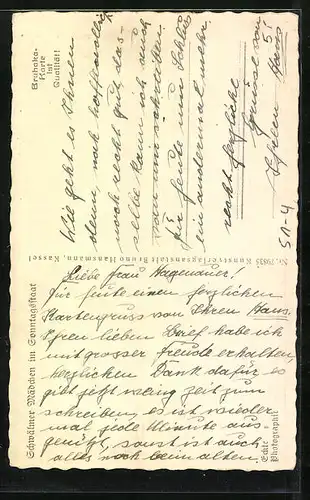 Schwälmer Mädchen im Sonntagsstaat
Echte
Photographie
Liebe Frau Hagenauer!
für heute einen herzlichen
Kartengruss von Ihren Hans.
Ihren lieben Brief habe ich
mit grosser Freude erhalten,
herzlichen Dank dafür es
gibt jetzt wenig Zeit zum
schreiben, es ist wieder
mal jede Minute aus-
genützt, sonst ist auch
alles noch beim alten.
Nr. 79835 Kunstverlagsanstalt Bruno Hansmann, Kassel
Bruhaka-
Karte
ist
Qualität!
Wie geht es Ihnen
denn, noch hoffentlich
noch recht gut, das-
selbe kann ich auch
von mir
für heute nun Schluss
ein andermal mehr.
recht herzliche
Grüsse von
Ihren Hans